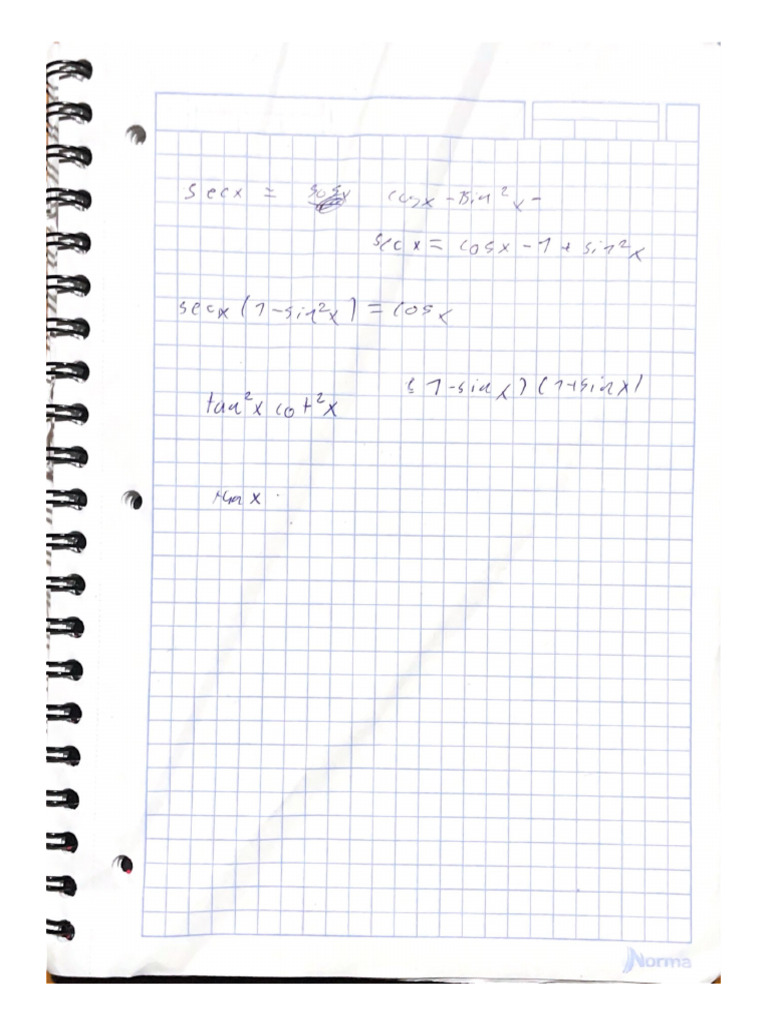 secx = cosx - sin²x -
sec x = cosx - 1 + sin²x
secx (1-sin²x) = cosx
(1-sinx) (1+sinx)
tan²x cot²x
x
Norma